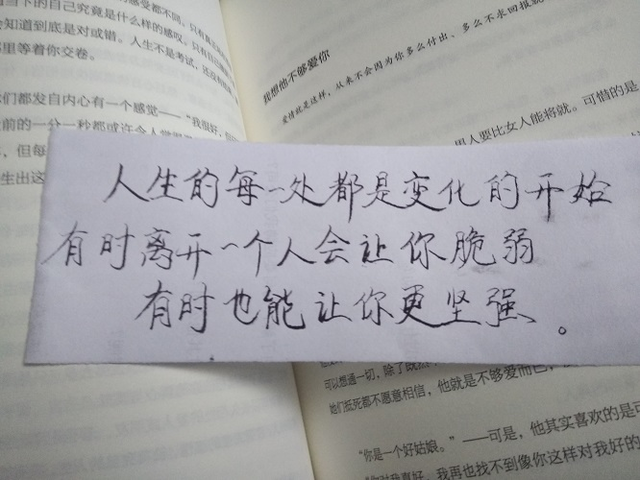 当下的自己究竟是什么样的感叹，只有
知道到底是对或错。人生不是考试，还没有
那里等着你交卷。
们都发自内心有一个感觉——“我很好，
前的一分一秒都或许令人
，但每
生出这
我想他不够爱你
爱情就是这样，从来不会因为你多么付出、多么不求回报
男人要比女人能将就。可惜的是
人生的每一处都是变化的开始
有时离开一个人会让你脆弱
有时也能让你更坚强。
可以想通一切，除了既然
她们抵死都不愿意相信，他就是不够爱而已，
“你是一个好姑娘。”——可是，他其实喜欢的是可
“你对我真好，我再也找不到像你这样对我好的